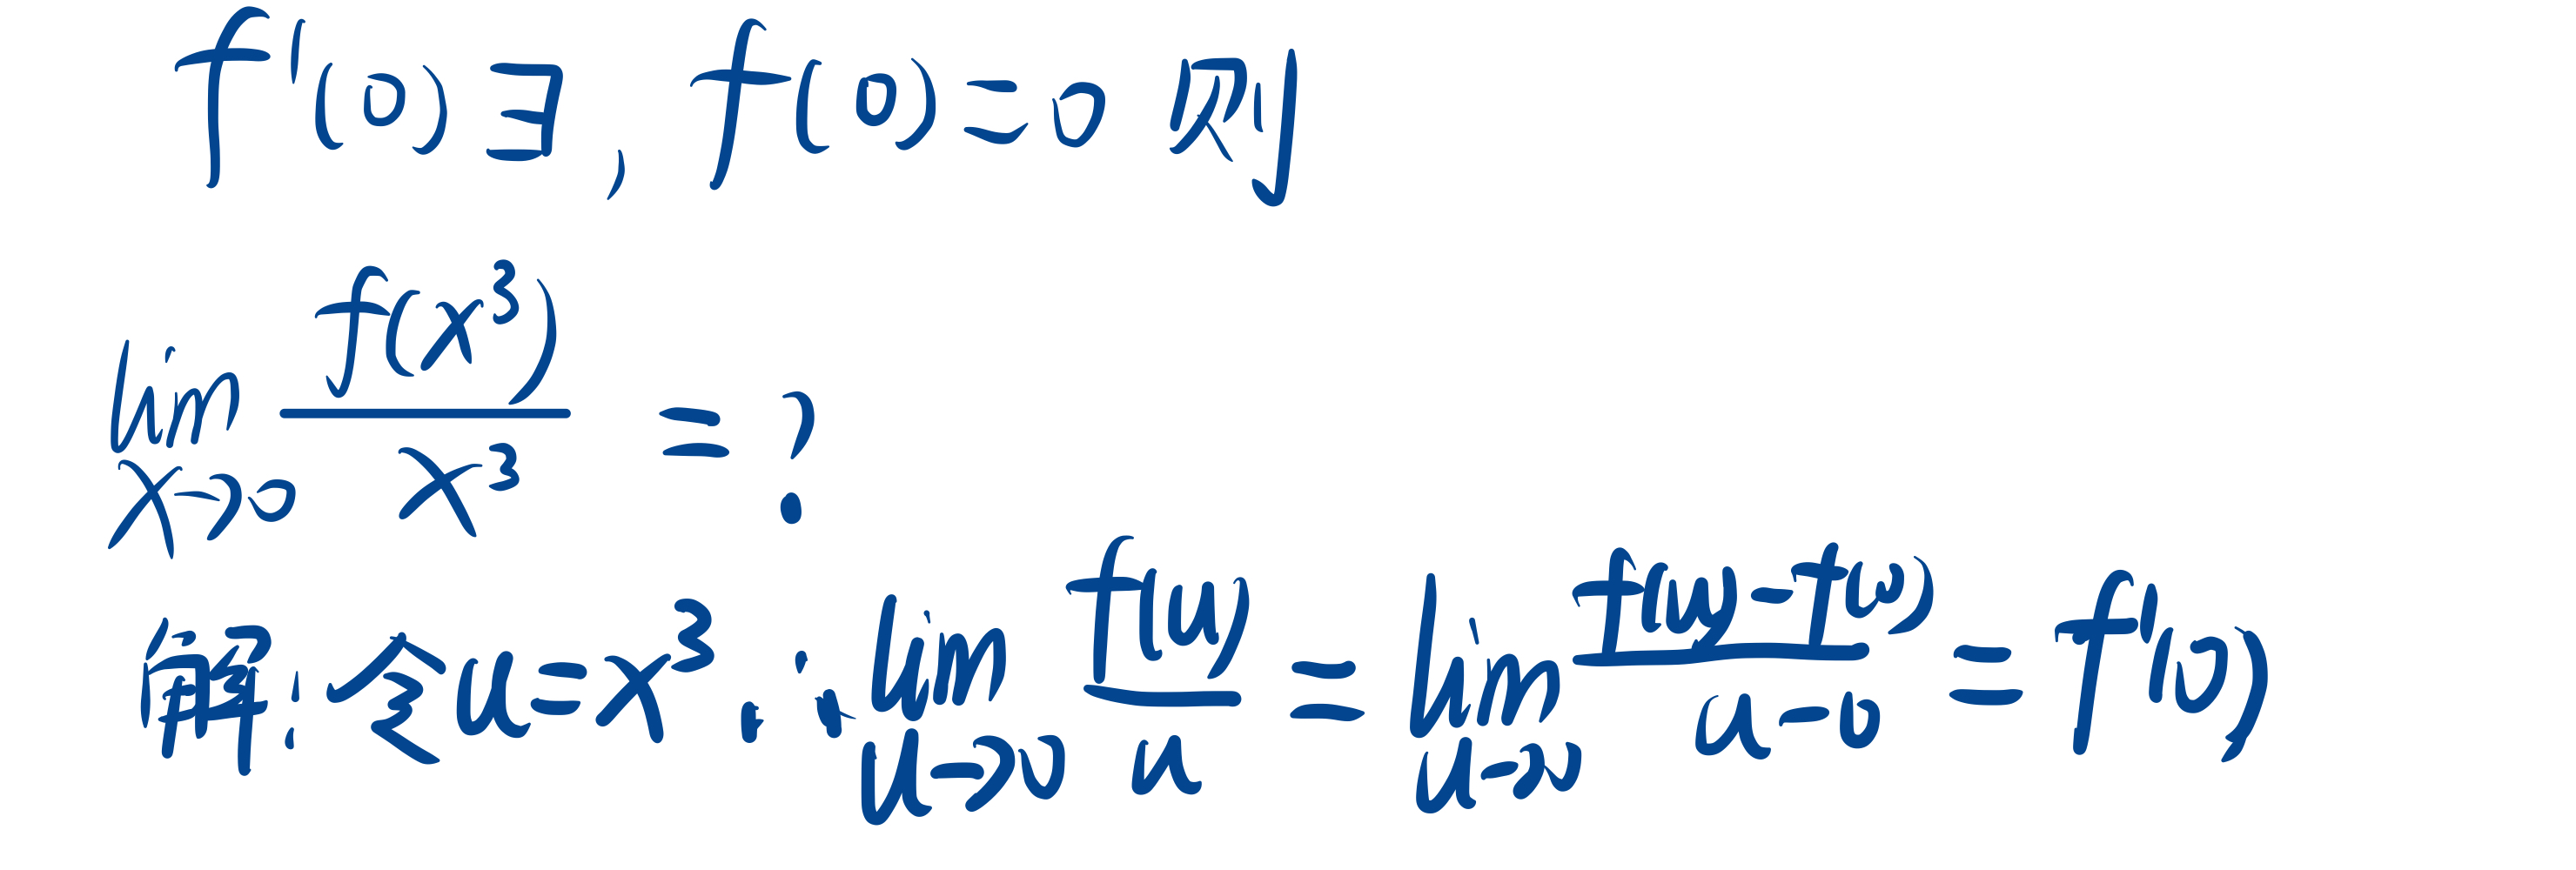 f'(0)∃, f(0)=0 则
lim x→0 f(x³)/x³ = ?
解:令u=x³ ∴ lim u→0 f(u)/u = lim u→0 f(u)-f(0)/u-0 = f'(0)